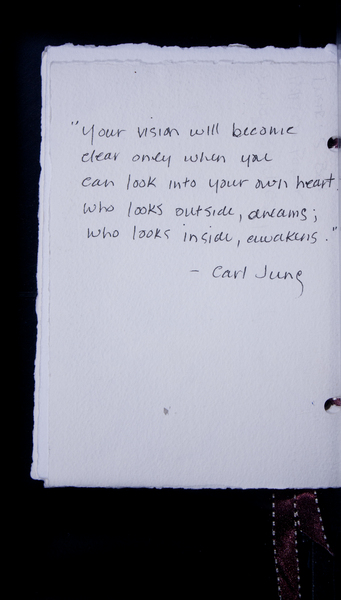 "Your vision will become
clear only when you
can look into your own heart.
Who looks outside, dreams;
who looks inside, awakens."
- Carl Jung